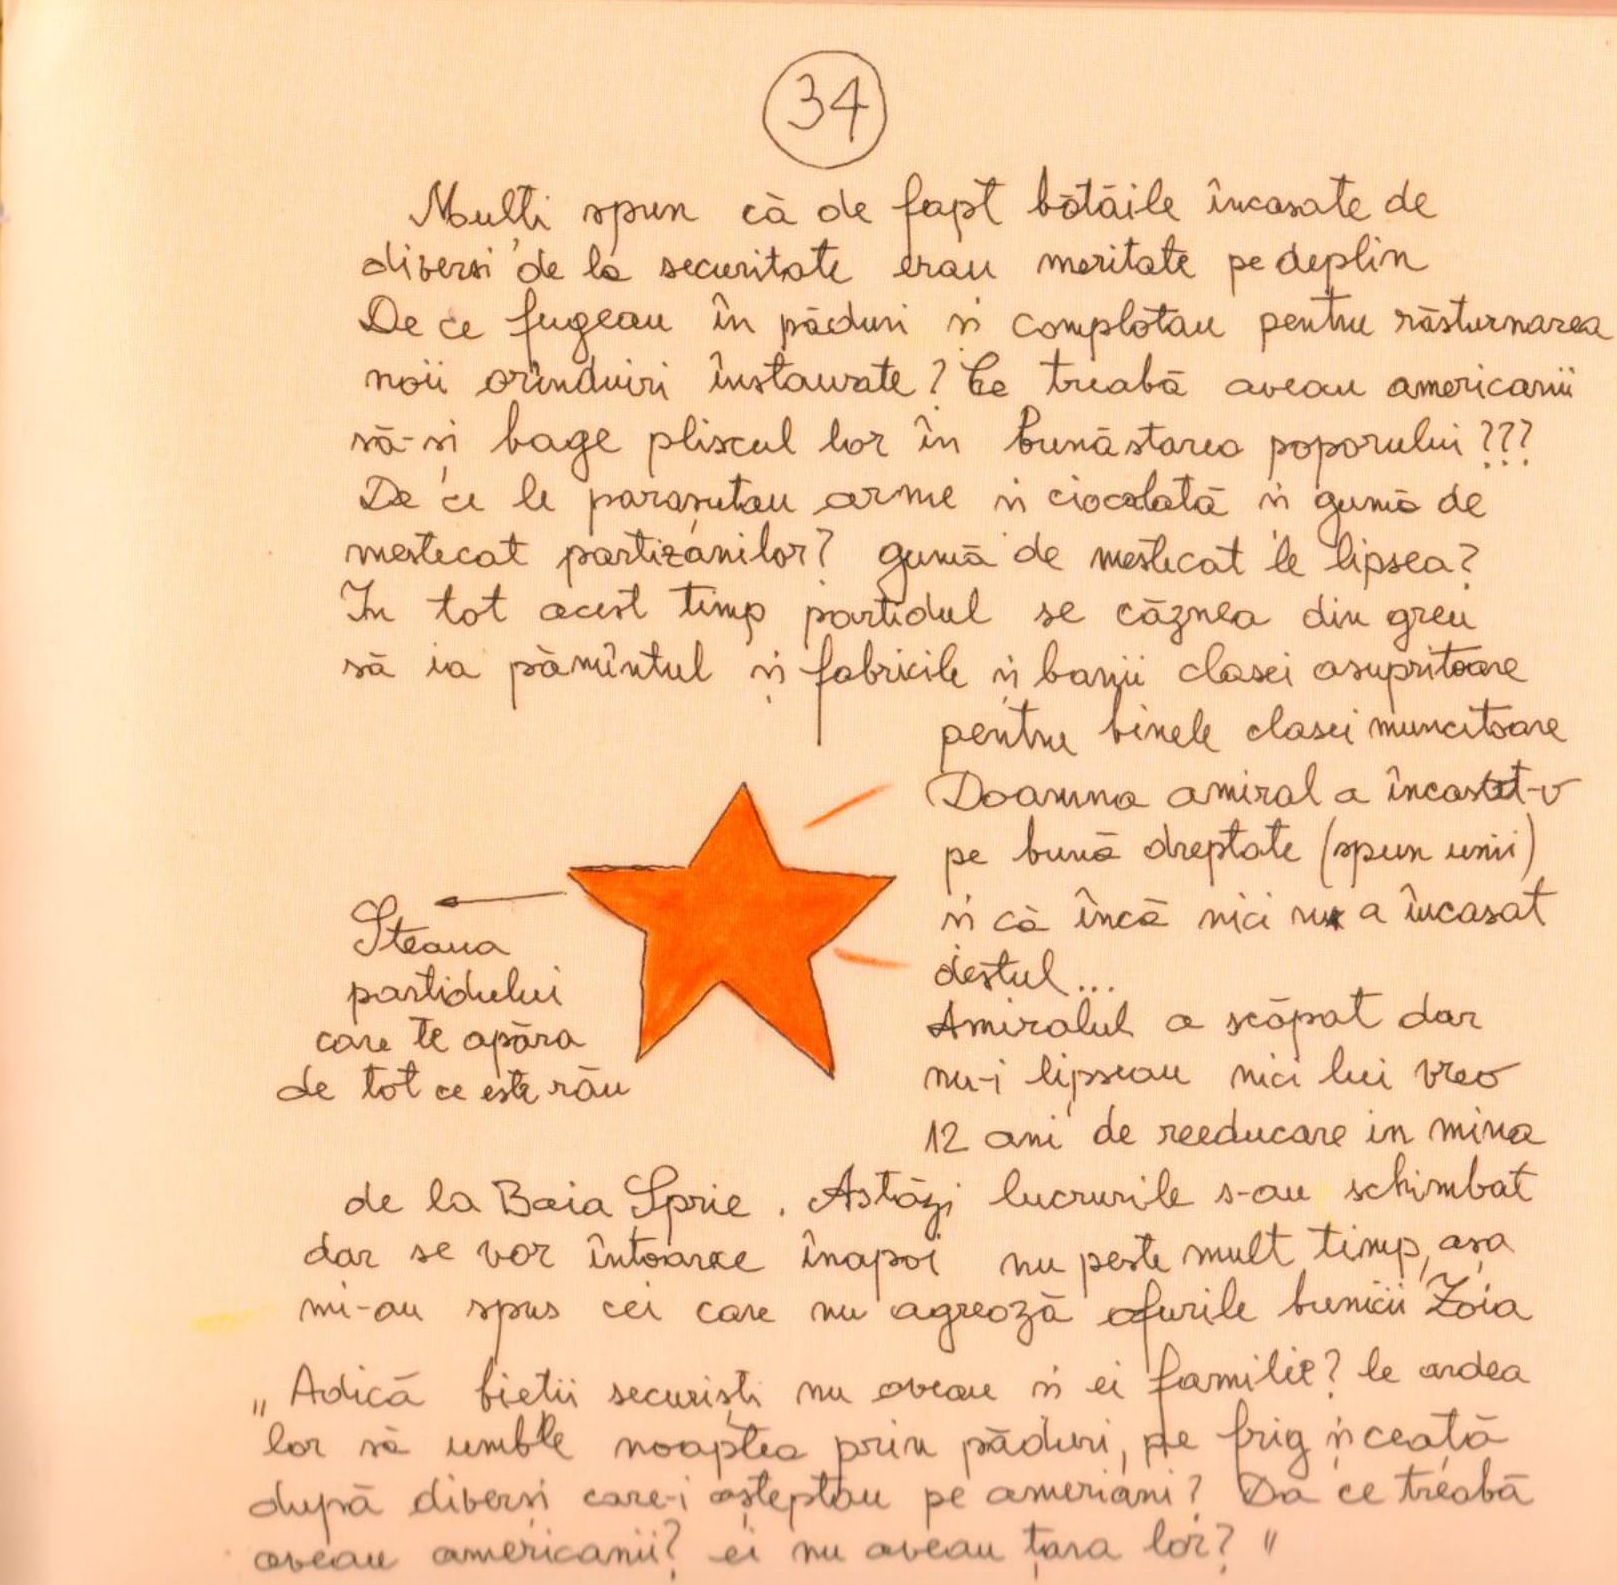 34
Mulți spun că de fapt bătăile încasate de
diverși de la securitate erau meritate pe deplin
De ce fugeau în păduri și complotau pentru răsturnarea
noii orînduiri înstaurate? Ce treabă aveau americanii
să-și bage pliscul lor în bunăstarea poporului???
De ce le parașutau arme și ciocolată și gumă de
mestecat partizanilor? gumă de mestecat le lipsea?
In tot acest timp partidul se căznea din greu
să ia pămîntul și fabricile și banii clasei asupritoare
pentru binele clasei muncitoare
Doamna amiral a încasat-o
pe bună dreptate (spun unii)
și că încă nici nu a încasat
destul...
Amiralul a scăpat dar
nu-i lipseau nici lui vreo
12 ani de reeducare in mina
de la Baia Sprie. Astăzi lucrurile s-au schimbat
dar se vor întoarce înapoi nu peste mult timp, așa
mi-au spus cei care nu agreoză ofurile bunicii Zoia
„Adică bieții securiști nu aveau și ei familie? le ardea
lor să umble noaptea prin păduri, pe frig și ceață
după diverși care-i așteptau pe ameriani? Da ce treabă
aveau americanii? ei nu aveau țara lor?"
Steaua
partidului
care te apăra
de tot ce este rău